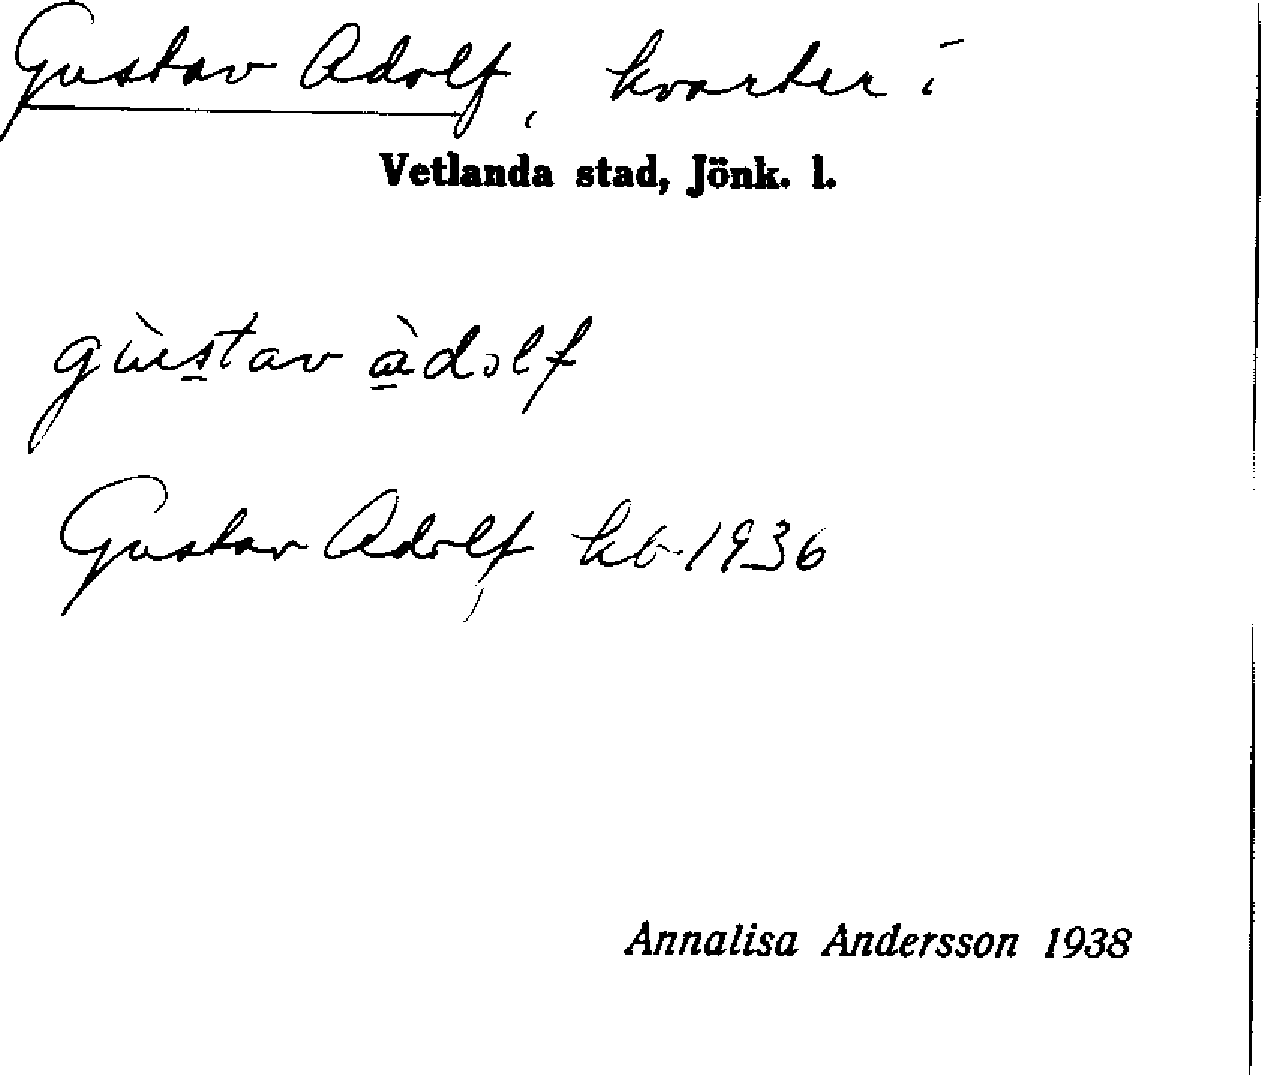 Gustav Adolf, kvarter i
Vetlanda stad, Jönk. l.
gùstav àdolf
Gustav Adolf kb 1936
Annalisa Andersson 1938